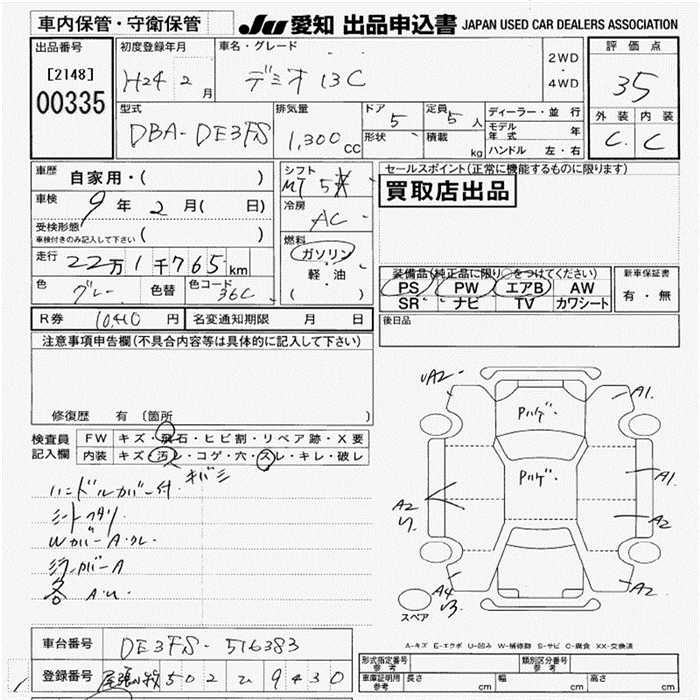 車内保管・守衛保管
JU 愛知 出品申込書 JAPAN USED CAR DEALERS ASSOCIATION
出品番号 [2148] 00335
初度登録年月 H24 2月
車名・グレード デミオ 13C
2WD・4WD
評価点 35
外装 C 内装 C
型式 DBA-DE3FS
排気量 1,300cc
ドア 5
形状
定員 5人
積載 kg
ディーラー・並行
モデル年式 年
ハンドル 左・右
車歴 自家用・( )
車検 9年 2月( 日)
受検形態 ( )
車検付きのみ記入して下さい
走行 22万1千765km
色 グレー 色替 色コード 36C
シフト MT 5
冷房 AC
燃料 ガソリン
軽・油
( )
セールスポイント(正常に機能するものに限ります)
買取店出品
装備品(純正品に限り○をつけてください)
PS PW エアB AW
SR ナビ TV カワシート
新車保証書 有・無
R券 10,410円 名変通知期限 月 日
後日品
注意事項申告欄(不具合内容等は具体的に記入して下さい)
修復歴 有 〔箇所
検査員記入欄
FW キズ・飛石・ヒビ割・リペア跡・X要
内装 キズ・汚レ・コゲ・穴・スレ・キレ・破レ
キバミ
ハンドルカバー付
シートヘタリ
WカバーA・クレ
A
各 A・U
UA2
A1
Pハゲ
A1
Pハゲ
A2
A2
A4
A2
スペア
A-キズ E-エクボ U-凹み W-補修跡 S-サビ C-腐食 XX-交換済
車台番号 DE3FS-516383
登録番号 尾張小牧 502 ひ 9430
型式指定番号 参考
類別区分番号 参考
車庫証明用 参考 長さ cm 幅 cm 高さ cm